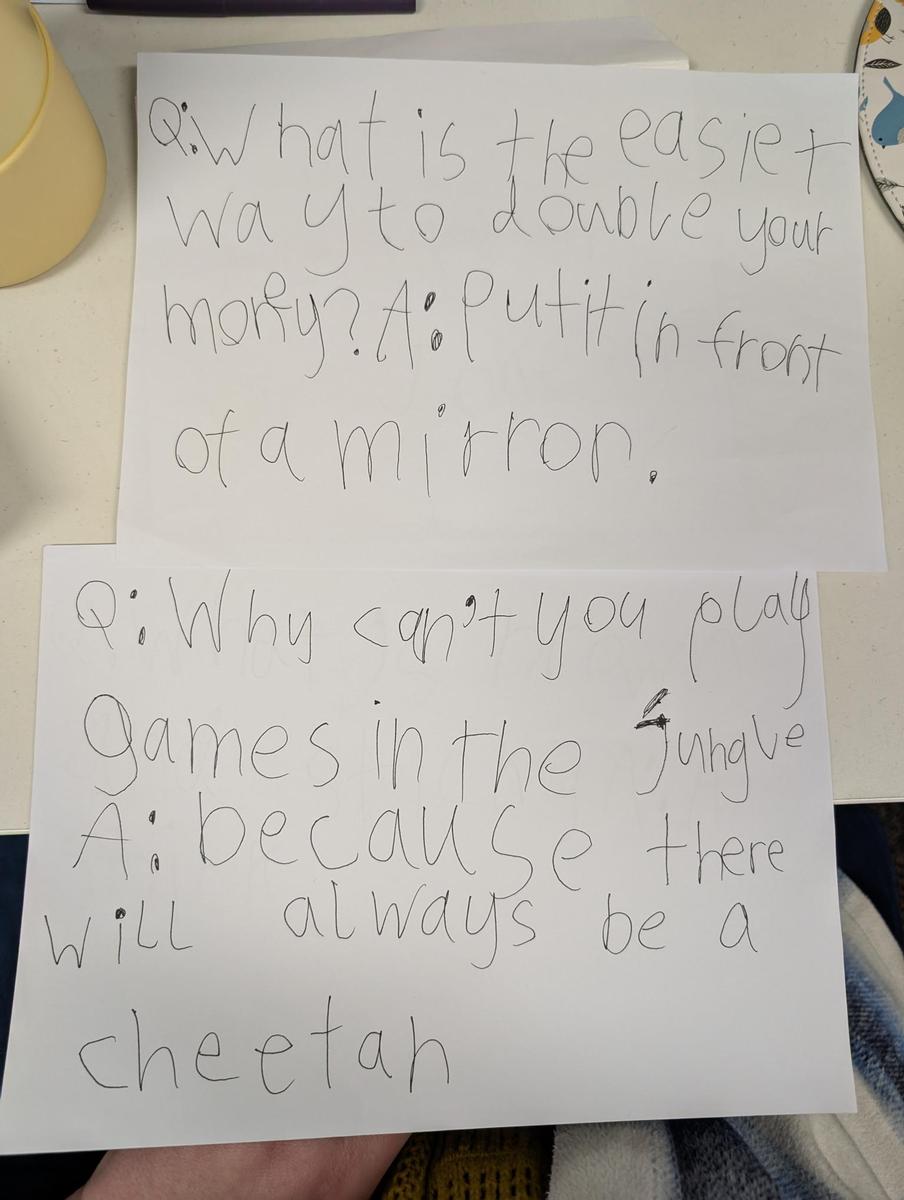 Q: What is the easiet
way to double your
money? A: Put it in front
of a mirror.
Q: Why can't you play
games in the jungle
A: because there
will always be a
cheetah